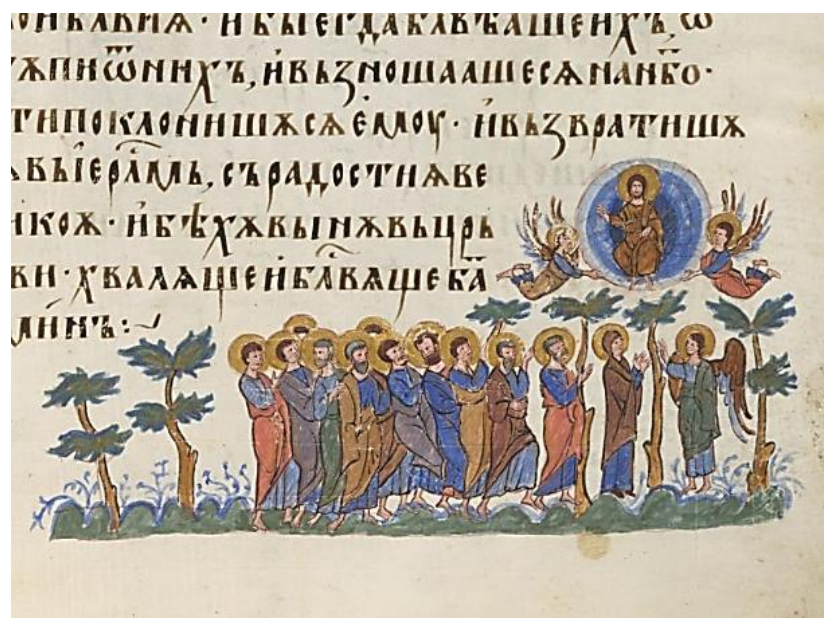 и бы егда бл҃вѣаше ихъ ѿ
ѫпи ѿ нихъ, и҆ вьзношаашесѧ на нб҃о ·
ти поклонишѫсѧ е҆моу · и҆ вьзвратишѫ
вь іер҃лмь, съ радостиѫ ве
икоѫ · и҆ бѣхѫ вынѫ вь црь
ви · хвалѧще и҆ бл҃вѧще б҃а
минъ :~